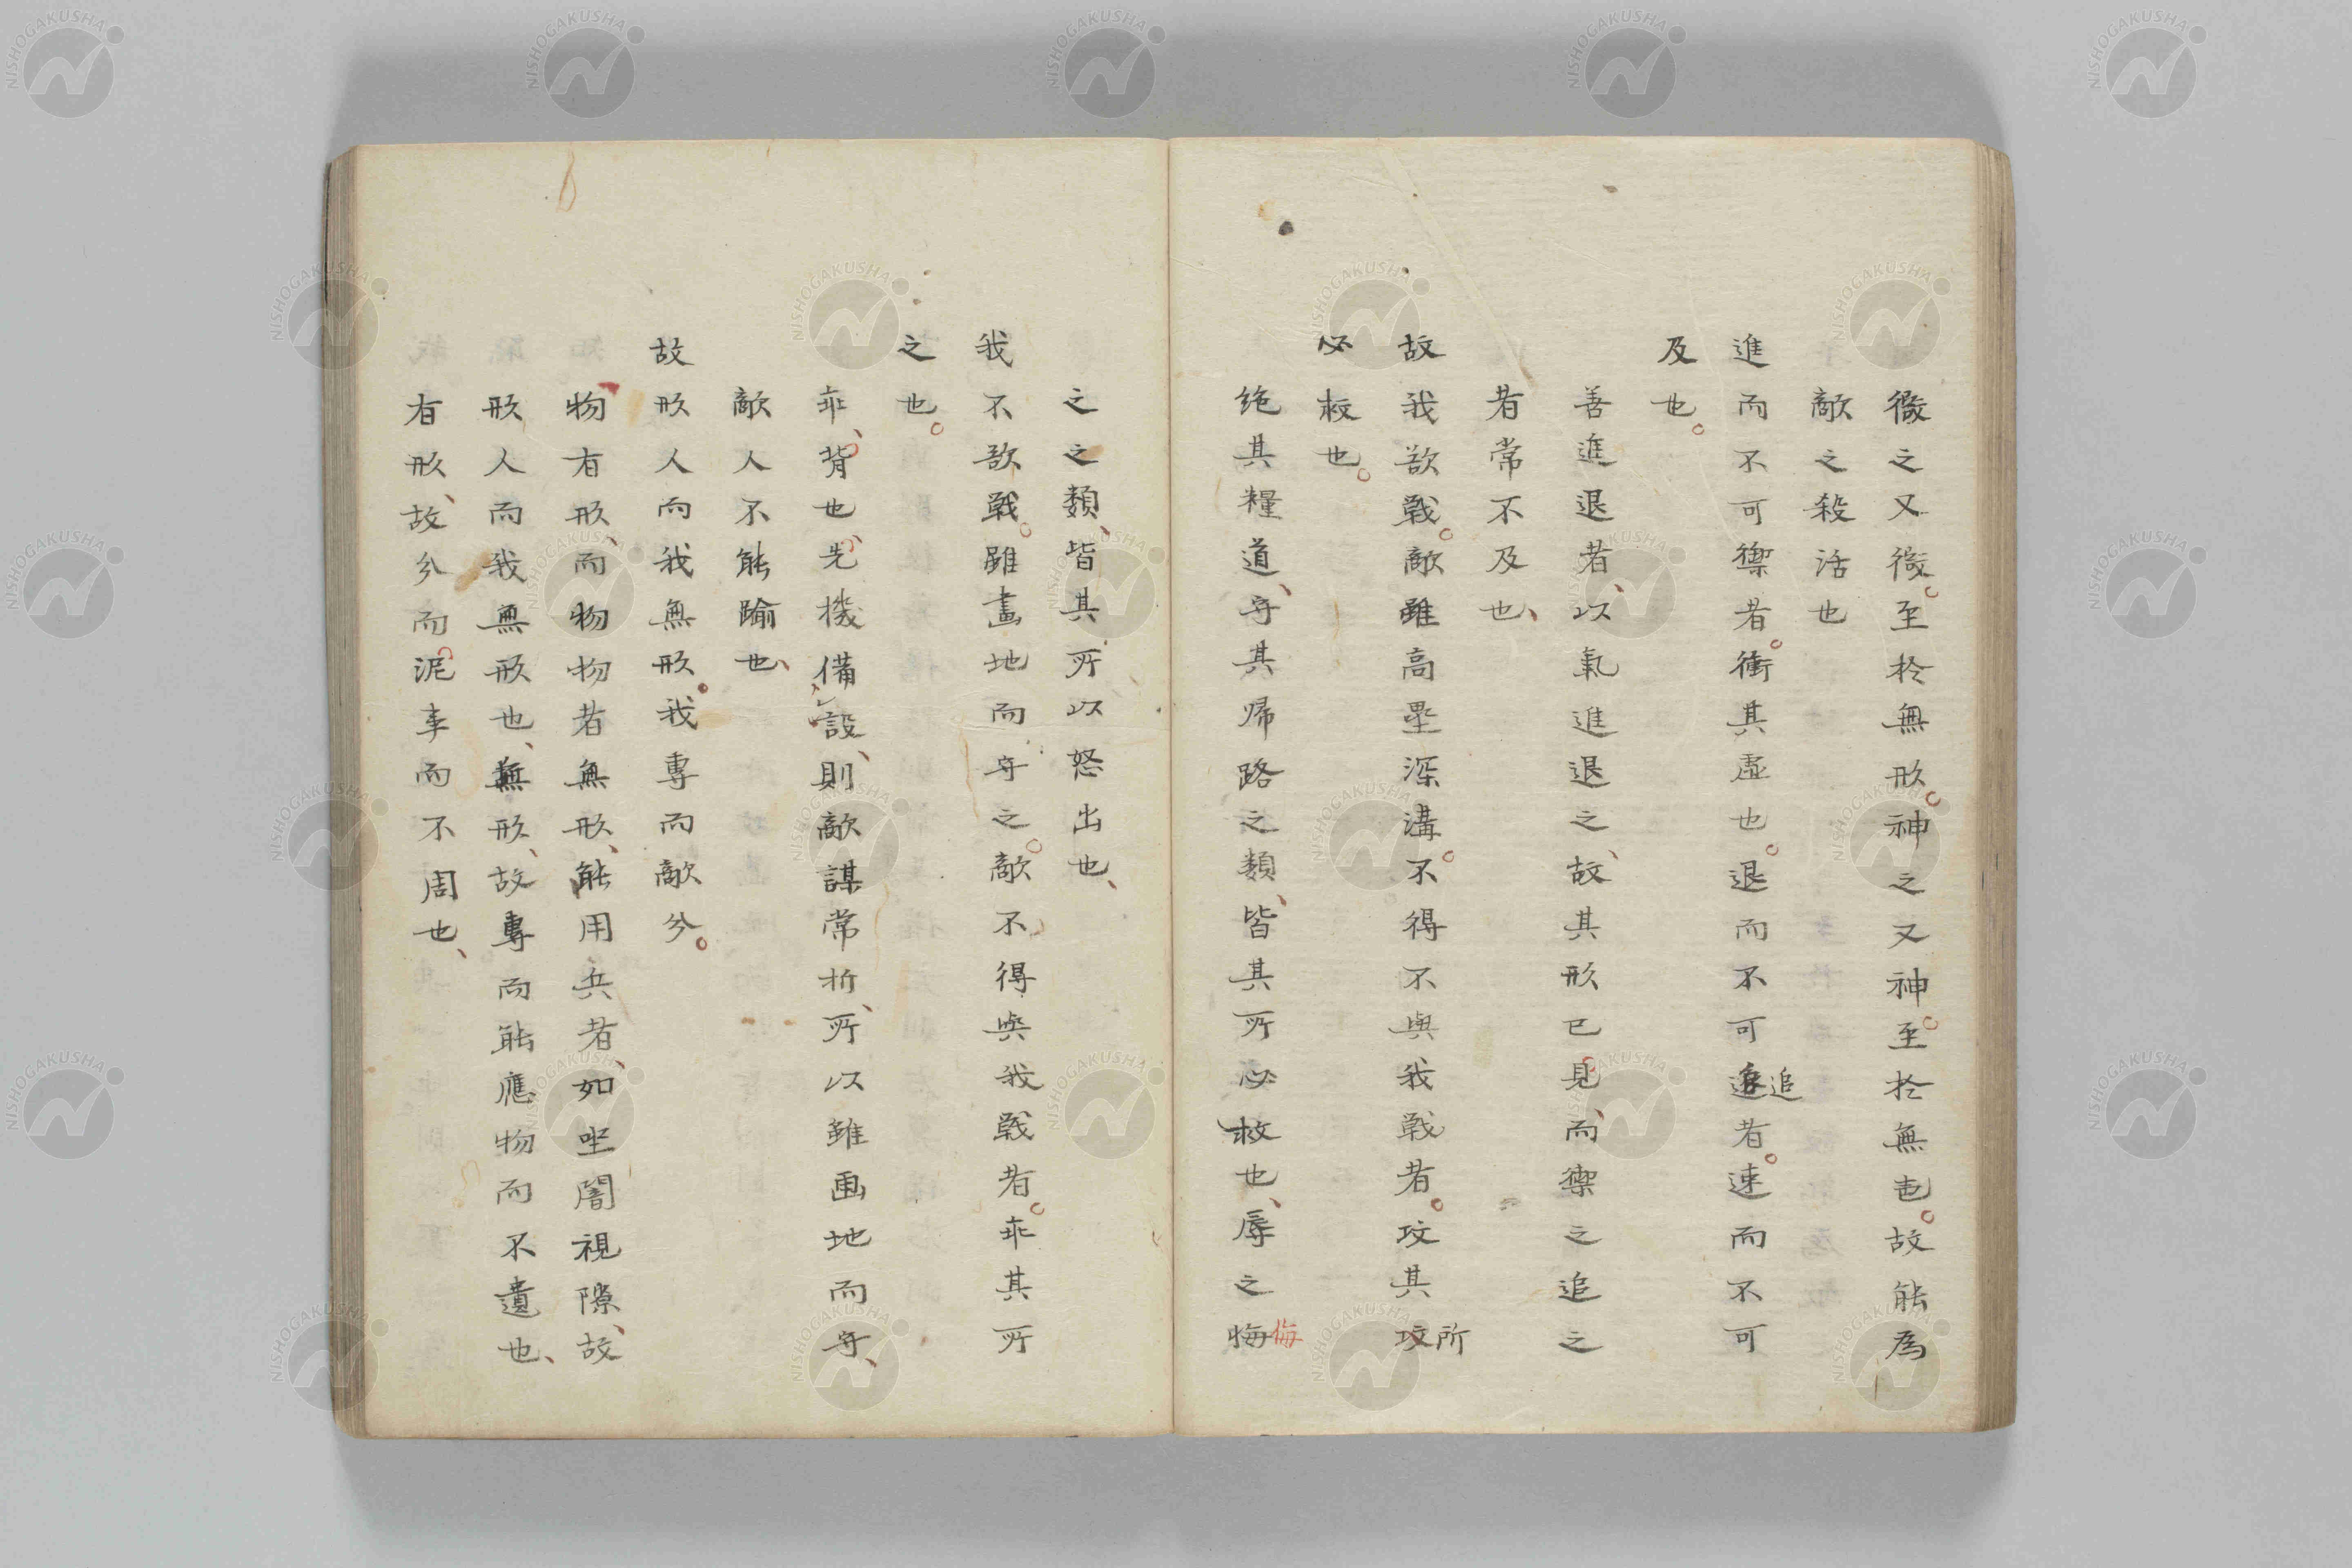 微之又微。至於無形。神之又神。至於無声。故能為
敵之殺活也
進而不可禦者。衝其虛也。退而不可追追者。速而不可
及也。
善進退者、以氣進退之、故其形已見、而禦之追之
者常不及也、
故我欲戰。敵雖高壘深溝。不得不與我戰者。攻其攻所
必救也。
絶其糧道、守其帰路之類、皆其所必救也、辱之悔侮
之之類、皆其所以怒出也、
我不欲戰。雖畫地而守之。敵不得與我戰者。乖其所
之也。
乖、背也、先機備設、則敵謀常折、所以雖画地而守、
敵人不能踰也、
故形人而我無形。我專而敵分。
物有形、而物物者無形、能用兵者、如坐闇視隙、故
形人而我無形也、無形、故專而能應物而不遺也、
有形、故分而泥事而不周也、